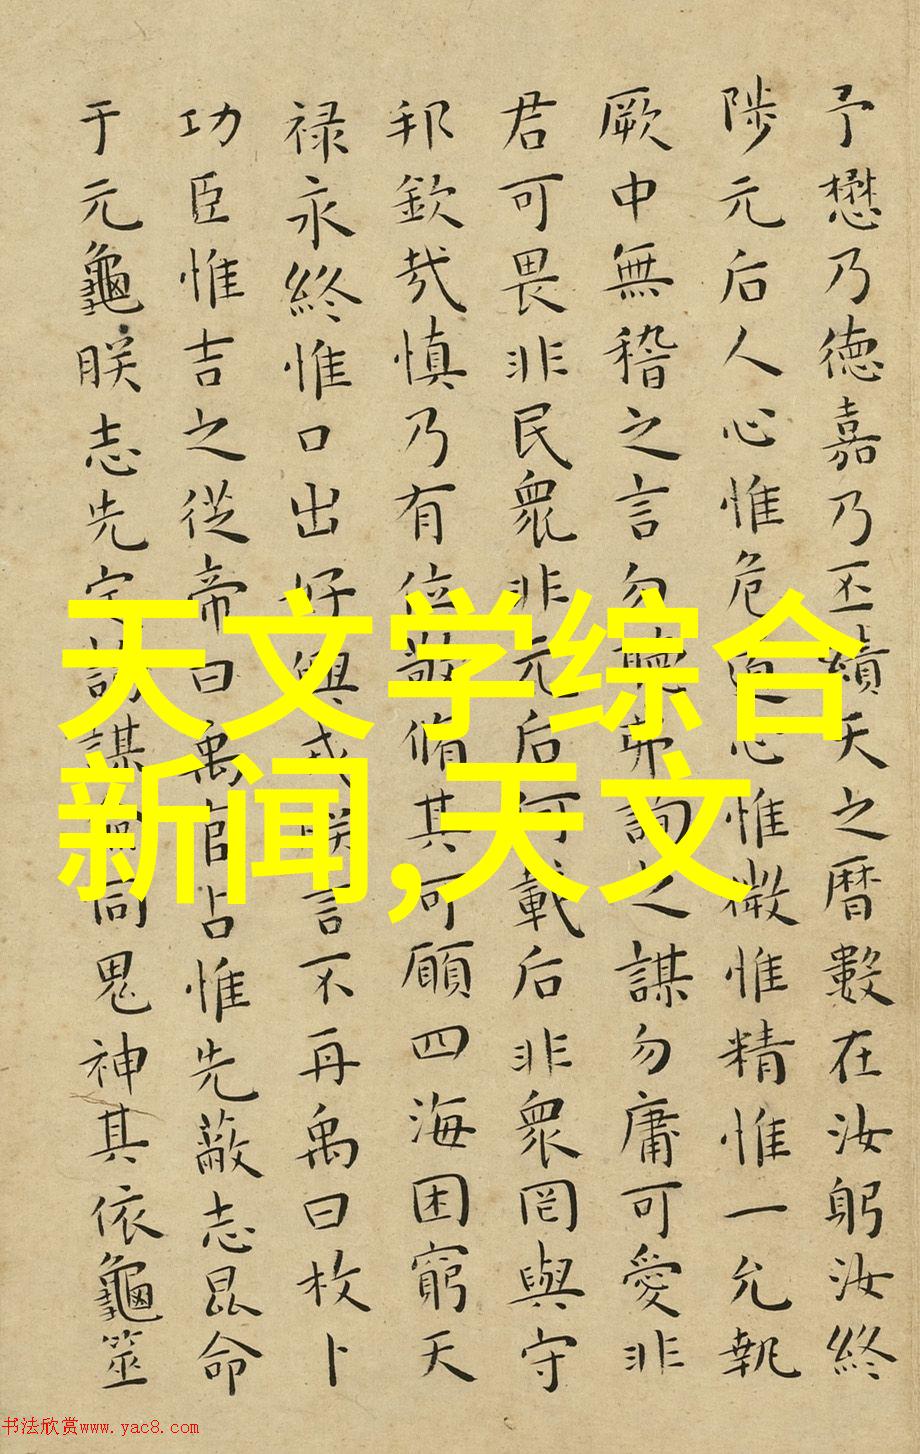 予懋乃德嘉乃丕績天之曆數在汝躬汝終
陟元后人心惟危道心惟微惟精惟一允執
厥中無稽之言勿聽弗詢之謀勿庸可愛非
君可畏非民衆非元后何載后非衆罔與守
邦欽哉慎乃有位敬脩其可願四海困窮天
禄永終惟口出好興戎朕言不再禹曰枚卜
功臣惟吉之從帝曰禹官占惟先蔽志昆命
于元龜朕志先定詢謀僉同鬼神其依龜筮
天文学综合
新闻,天文
书法欣赏www.yac8.com